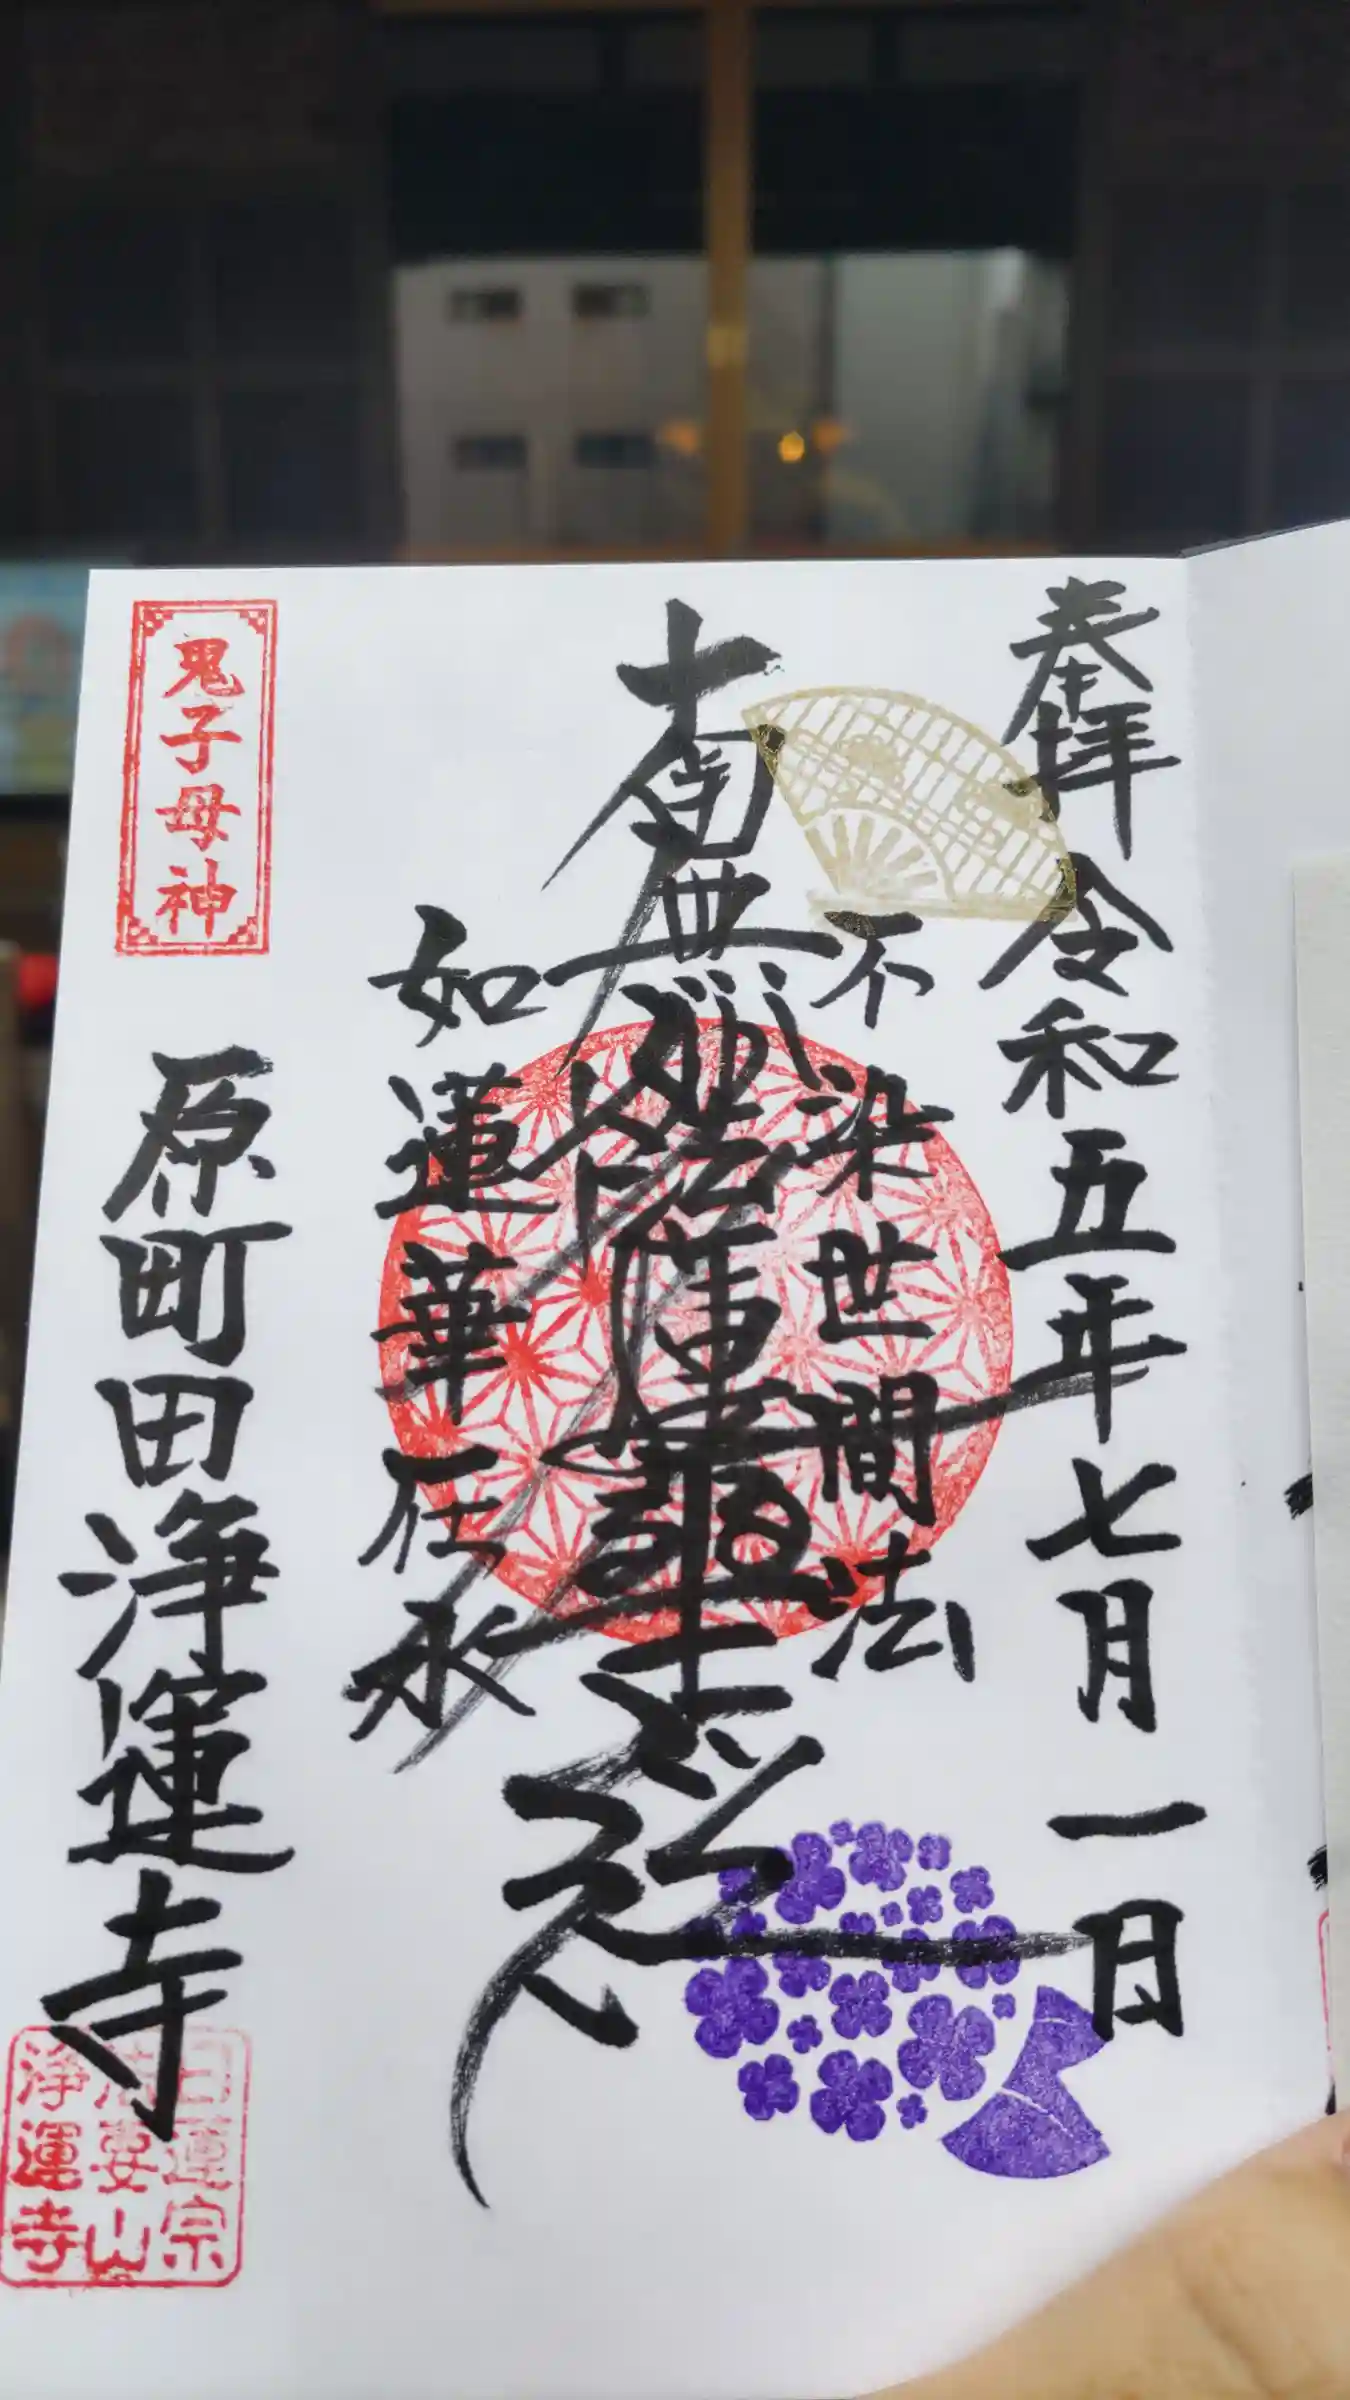 奉拝 令和五年七月一日
不染世間法
南無妙法蓮華経
如蓮華在水
鬼子母神
原町田浄運寺
日蓮宗
法要山
浄運寺